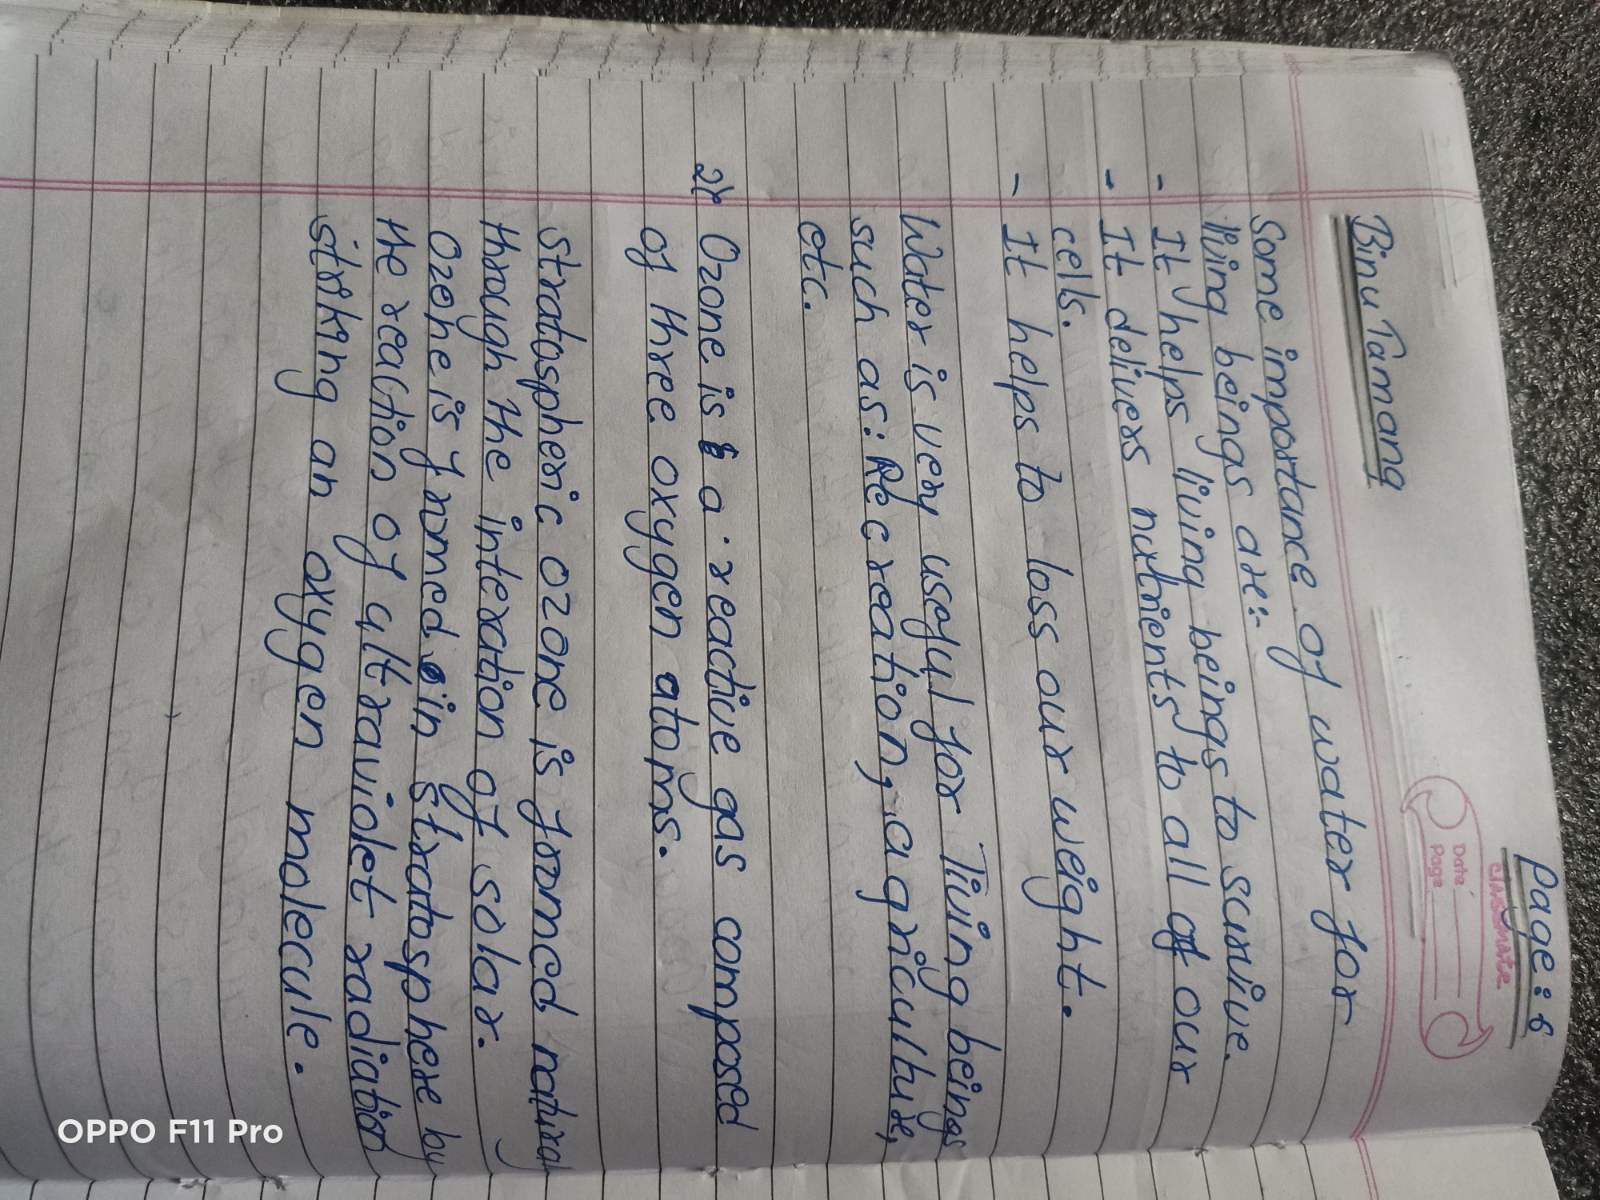 Page: 6
classmate
Date
Page
Binu Tamang
Some importance of water for
living beings are:-
- It helps living beings to survive.
- It delivers nutrients to all of our
cells.
- It helps to loss our weight.
Water is very useful for living beings
such as: Recreation, agriculture,
etc.
2) Ozone is a reactive gas composed
of three oxygen atoms.
Stratospheric ozone is formed natural
through the interation of solar.
Ozone is formed in stratosphere by
the reaction of ultraviolet radiation
striking an oxygen molecule.
OPPO F11 Pro